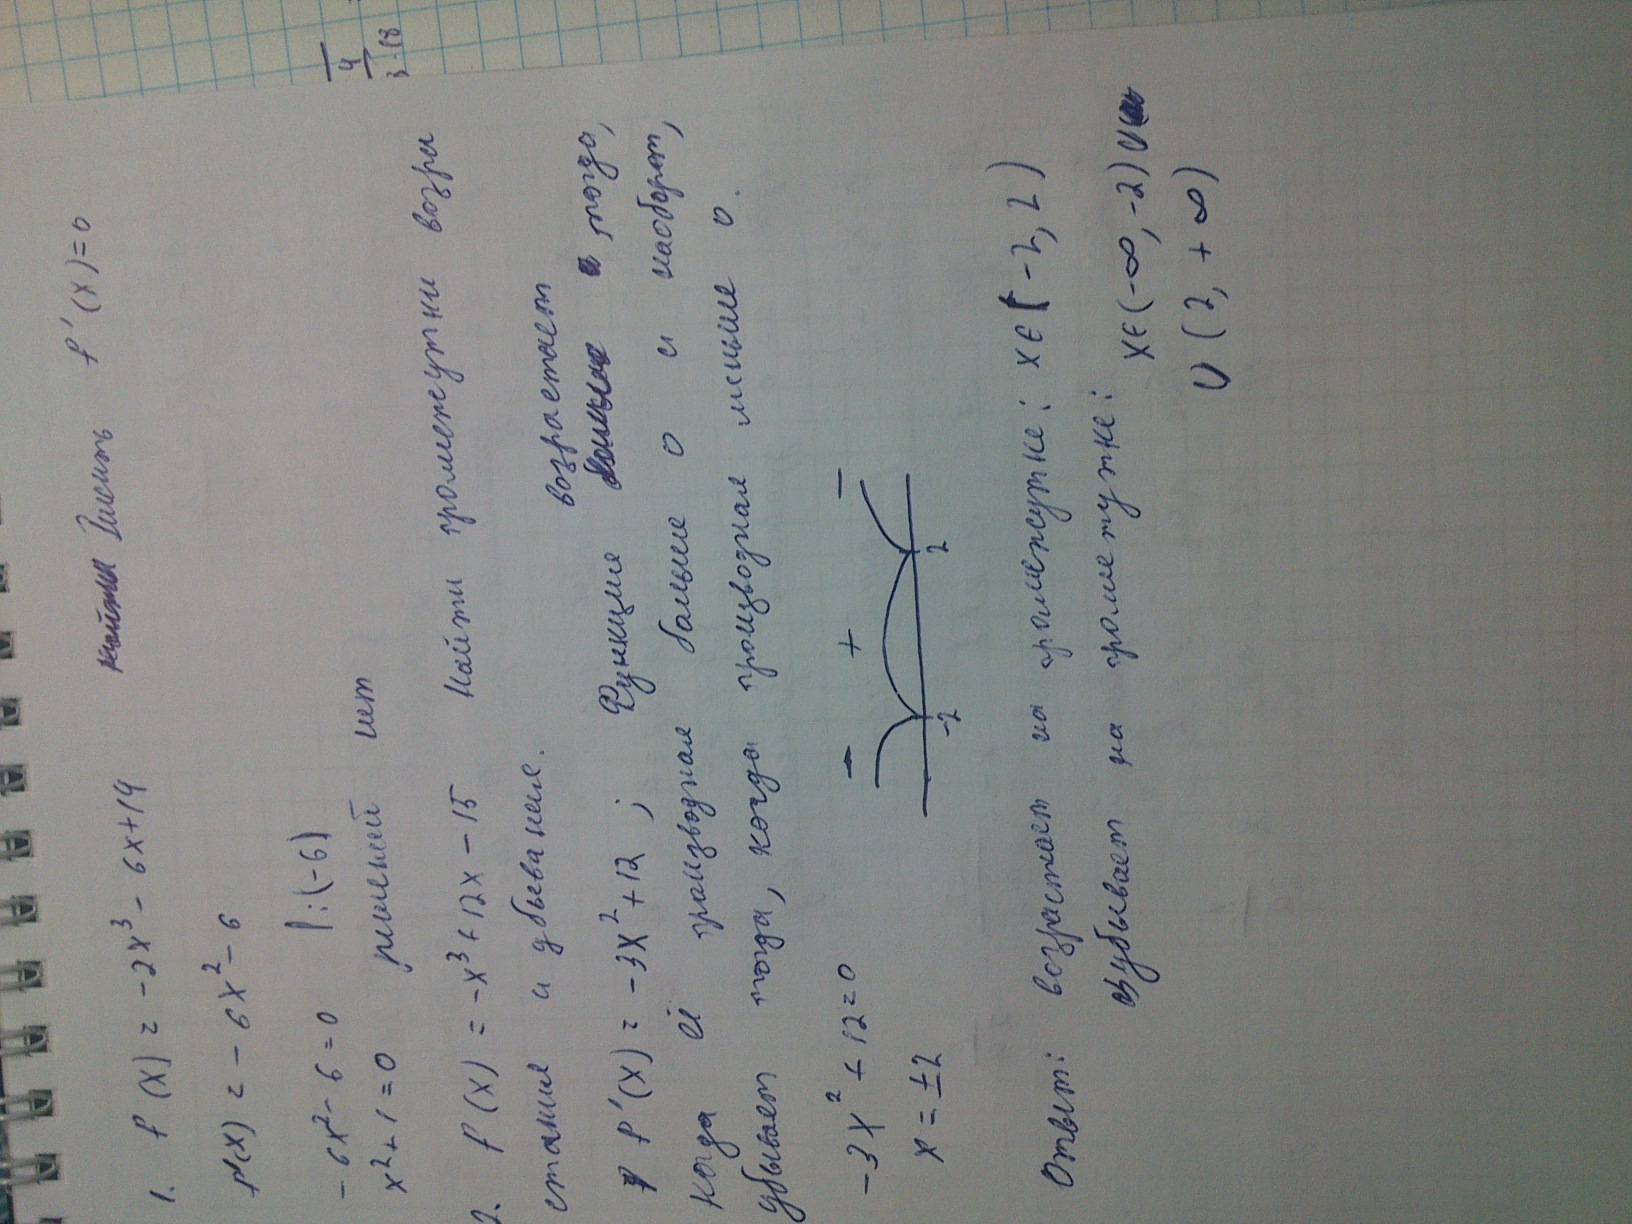 1. f(x) = -2x³ - 6x + 14 Решить f'(x) = 0
f'(x) = -6x² - 6
-6x² - 6 = 0 |:(-6)
x² + 1 = 0 решений нет
2. f(x) = -x³ + 12x - 15 Найти промежутки возра
стания и убывания.
возрастает
f'(x) = -3x² + 12 ; Функция тогда,
когда её производная больше 0 и наоборот,
убывает тогда, когда производная меньше 0.
-3x² + 12 = 0 - + -
x = ±2 -2 2
Ответ: возрастает на промежутке: x∈(-2, 2)
убывает на промежутке: x∈(-∞, -2) ∪
∪ (2, +∞)
4
3·18